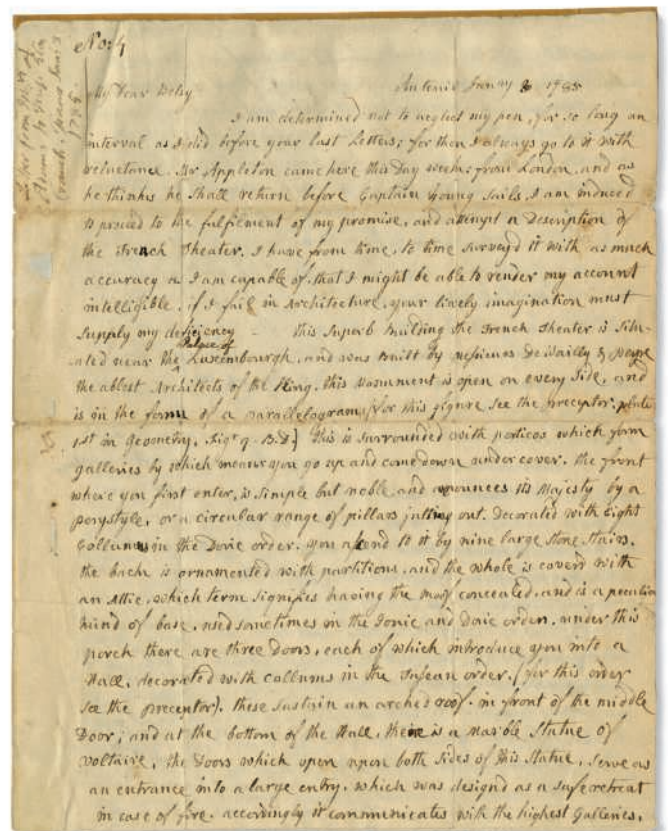 No: 4
My Dear Betsy
Auteuil Janry 3 1785
I am determined not to neglect my pen, for so long an
interval as I did before your last Letters; for then I always go to it with
reluctance. Mr Appleton came here this Day week, from London, and as
he thinks he shall return before Captain Young sails, I am induced
to proceed to the fulfilment of my promise, and attempt a Description of
the French Theater. I have from time, to time survey'd it with as much
accuracy as I am capable of, that I might be able to render my account
intelligible. if I fail in Architecture, your lively imagination must
supply my deficiency - this superb Building the French Theater is Situ-
ated near the Palace of Luxembourgh, and was Built by messieurs De Wailly & peyre
the ablest Architects of the King. this Monument is open on every side, and
is in the form of a parallelogram, (for this figure see the preceptor. plate
1st in Geometry, Figr 9. B.D.) this is surrounded with porticos which form
galleries by which means you go up and come down under cover. the front
where you first enter, is simple but noble, and announces its Majesty by a
perystyle, or a circular range of pillars jutting out. Decorated with Eight
Collumns in the Doric order. you asend to it by nine large stone stairs.
the back is ornamented with partitions, and the whole is coverd with
an Attic, which term signifies having the roof concealed, and is a peculiar
kind of base, used sometimes in the Ionic and Doric orders. under this
porch there are three Doors, each of which introduce you into a
Hall, decorated with collums in the Tuscan order. (for this order
see the preceptor). these sustain an arched roof. in front of the middle
Door; and at the bottom of the Hall, there is a Marble Statue of
Voltaire, the Doors which open upon both sides of this Statue, serve as
an entrance into a large entry, which was designed as a safe retreat
in case of fire. accordingly it communicates with the highest Galleries,